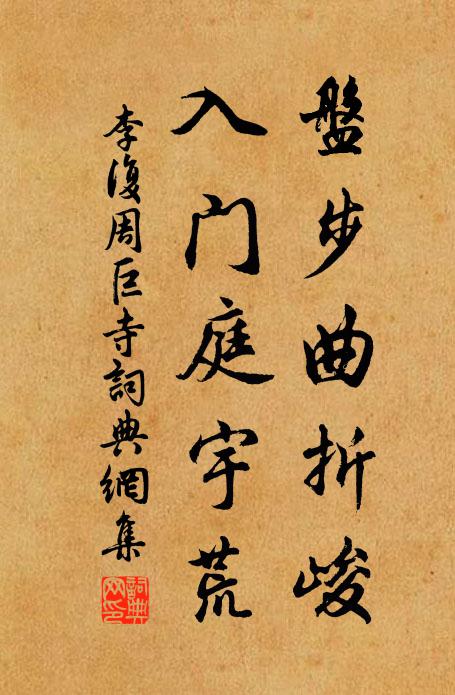 盤步曲折峻
入门庭宇荒
李復周巨寺詞典網集
詞典网印